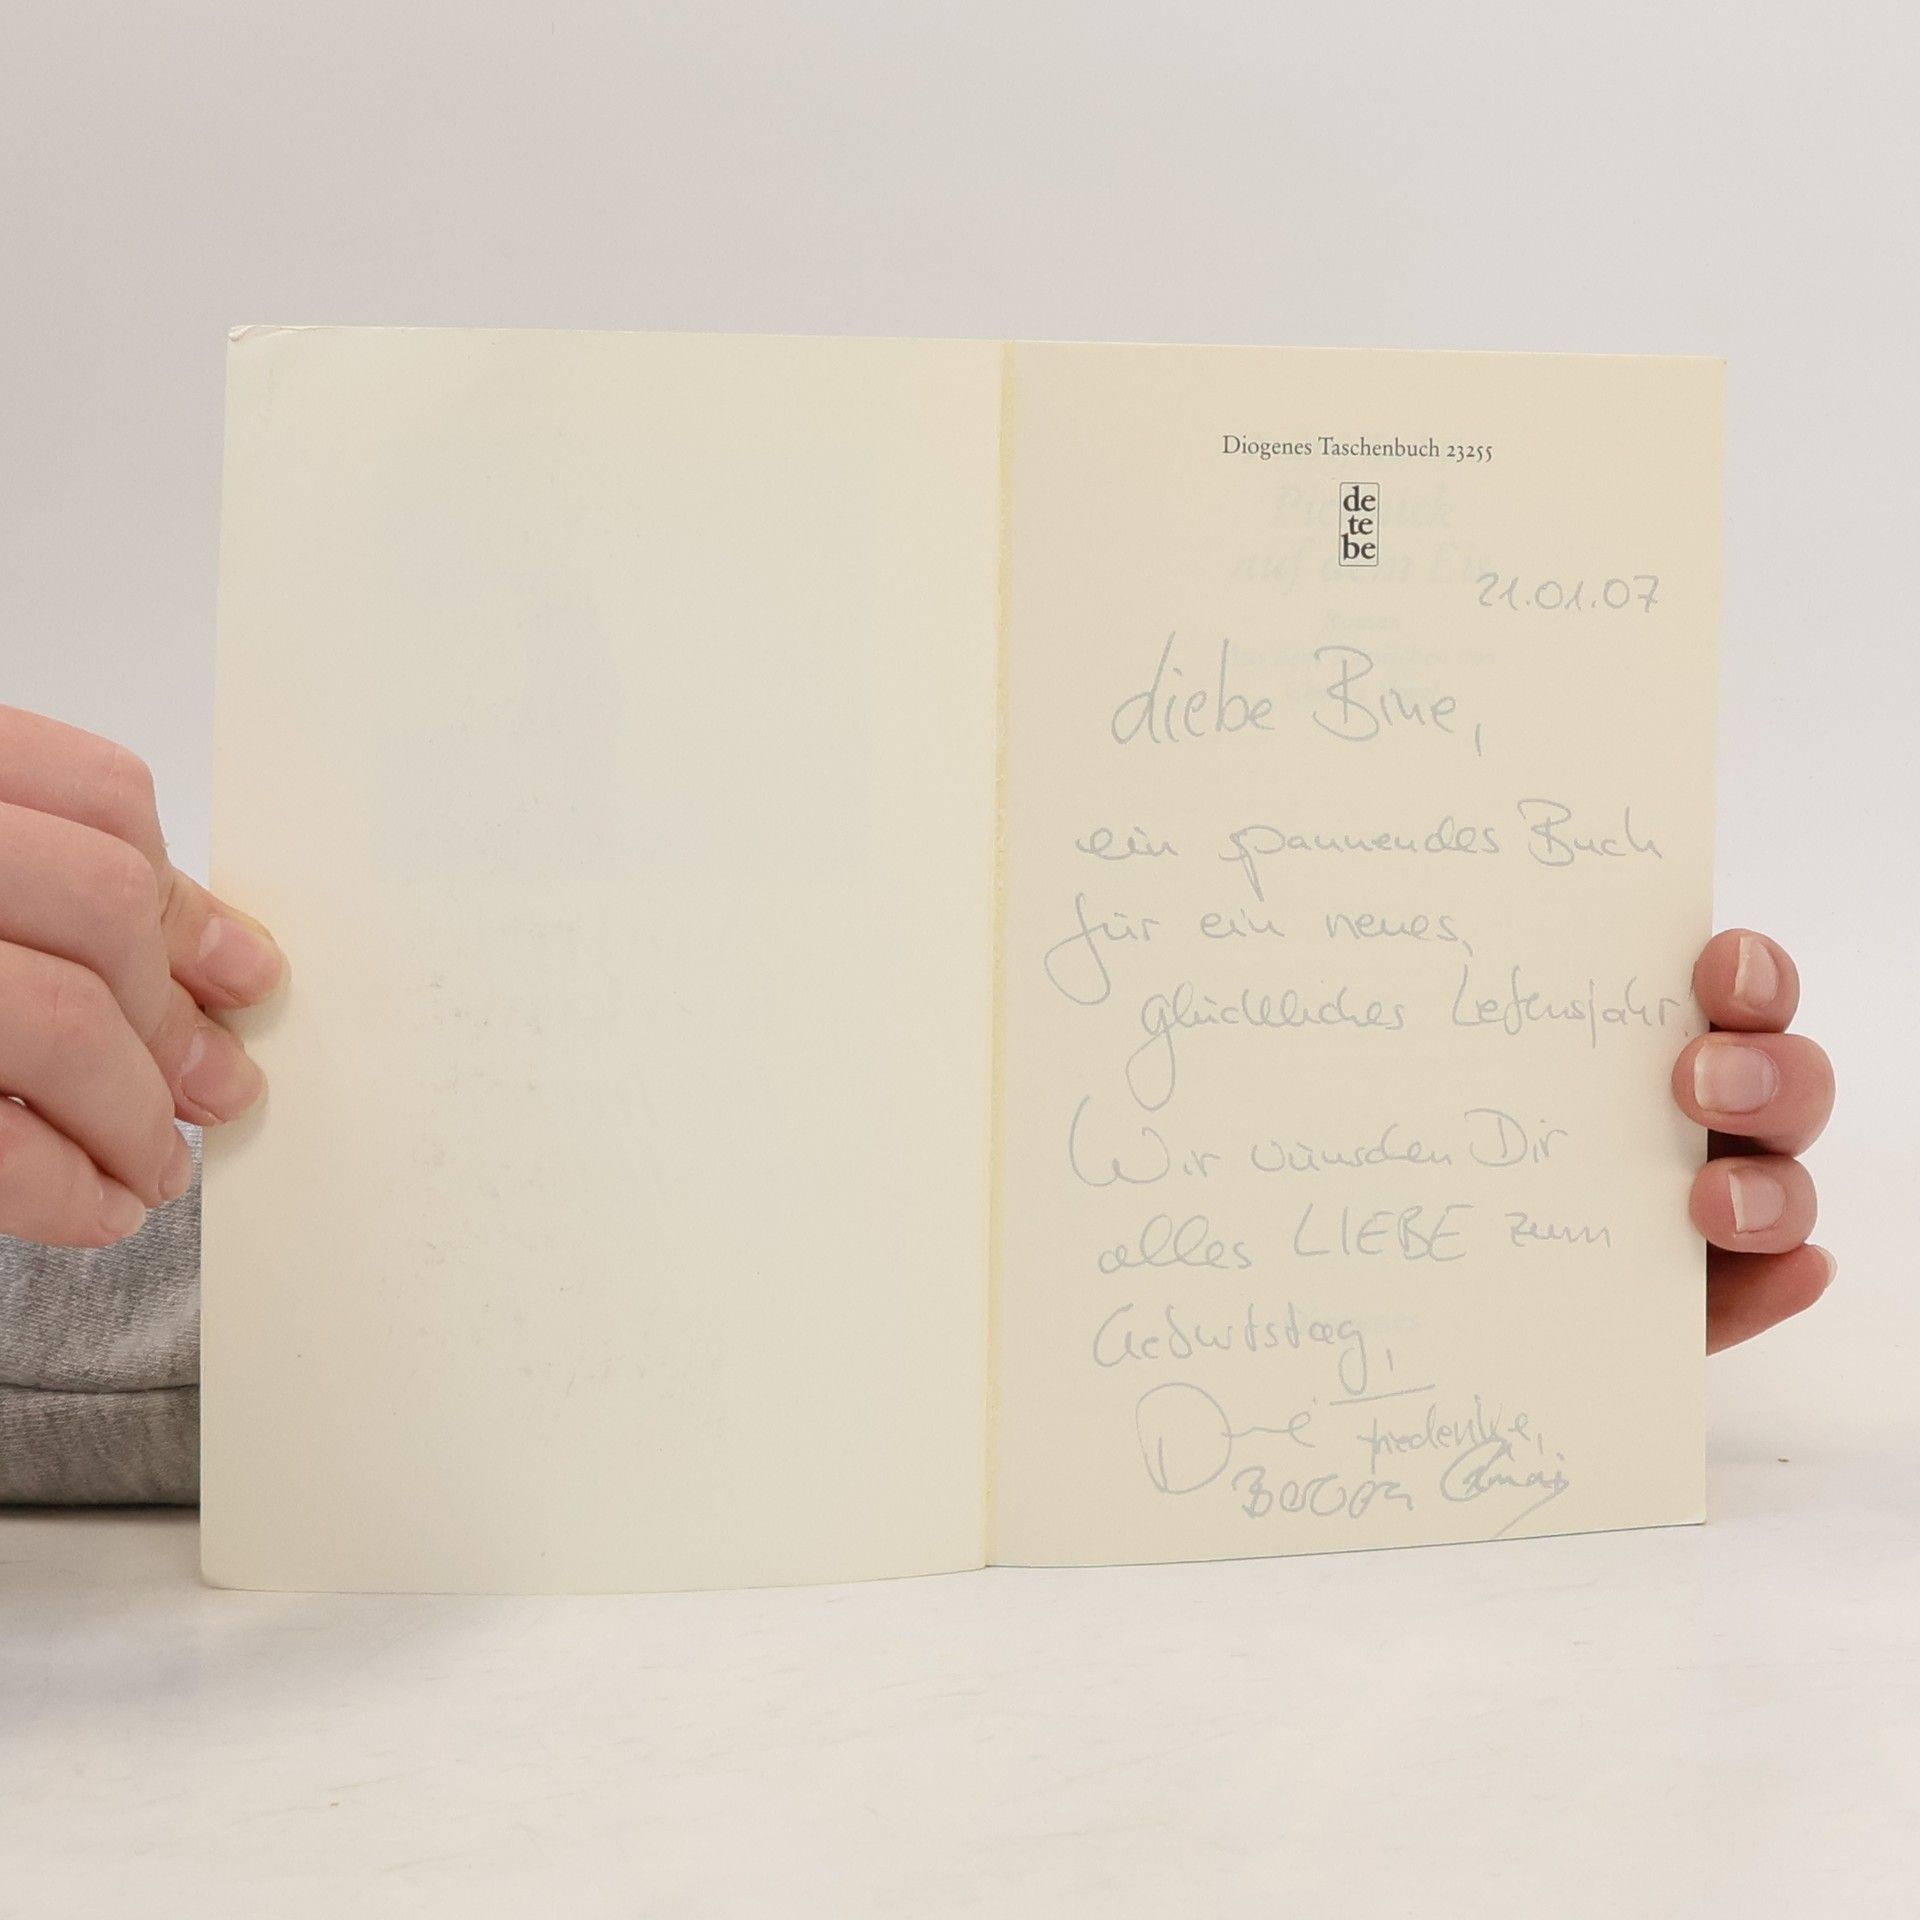 Diogenes Taschenbuch 23255
de
te
be
21.01.07
Liebe Bine,
ein spannendes Buch
für ein neues,
glückliches Lebensjahr!
Wir wünschen Dir
alles LIEBE zum
Geburtstag,
Friederike,